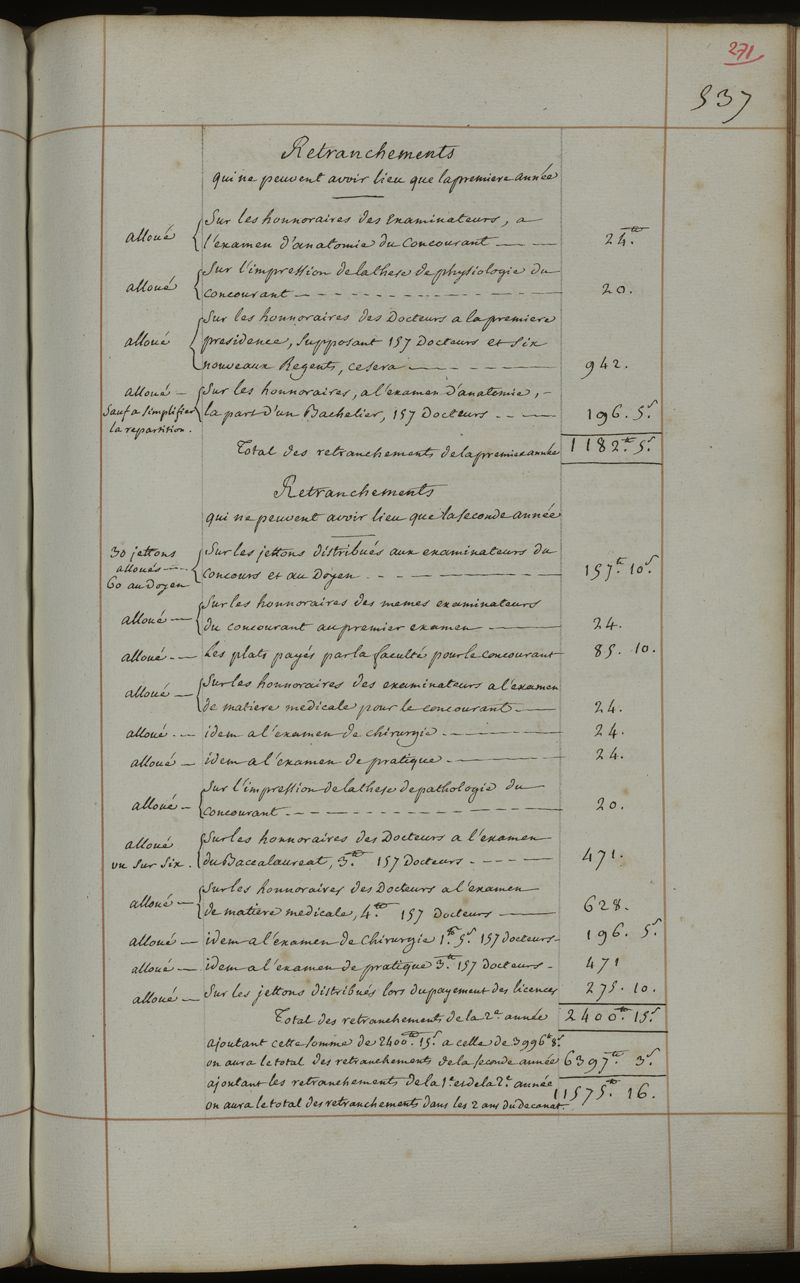 271
537
Retranchements
qui ne peuvent avoir lieu que la premiere année
alloué { Sur les honnoraires des Examinateurs, a
l'examen d'anatomie du Concourant — — 24.tt
alloué { Sur l'impression de la these de physiologie du
concourant — 20.
alloué { Sur les honnoraires des Docteurs a la premiere
presidence, supposant 157 Docteurs et six
nouveaux Regents, ce sera — 942.
alloué — { Sur les honnoraires, a l'examen d'anatomie, –
Sauf a simplifier la part d'un Bachelier, 157 Docteurs — 196. 5.s
la repartition.
Total des retranchements de la premiere année 1182.tt 5.s
Retranchements
qui ne peuvent avoir lieu que la seconde année
30 jettons { Sur les jettons distribués aux examinateurs du
alloués — concours et au Doyen — 157.tt 10.s
60 au Doyen
alloué — { Sur les honnoraires des memes examinateurs
du concourant au premier examen — 24.
alloué — Les plats payés par la faculté pour le concourant 85. 10.
alloué — { Sur les honnoraires des examinateurs a l'examen
de matiere medicale pour le concourant — 24.
alloué — idem a l'examen de chirurgie — 24.
alloué — idem a l'examen de pratique — 24.
alloué — { Sur l'impression de la these de pathologie du
Concourant — 20.
alloué { Sur les honnoraires des Docteurs a l'examen
un sur six. du Baccalaureat, 3.tt 157 Docteurs — 471.
alloué — { Sur les honnoraires des Docteurs a l'examen
de matiere medicale, 4.tt 157 Docteurs — 628.
alloué — idem a l'examen de chirurgie 1.tt 5.s 157 docteurs – 196. 5.s
alloué — idem a l'examen de pratique 3.tt 157 docteurs – 471
alloué — Sur les jettons distribués lors du payement des licences 275. 10.
Total des retranchements de la 2.e année 2400.tt 15.s
ajoutant cette somme de 2400.tt 15.s a celle de 3996.tt 8.s
on aura le total des retranchements de la seconde année 6397.tt 3.s
ajoutant les retranchements de la 1.e et de la 2.e année
on aura le total des retranchements dans les 2 ans du decanat. 11575.tt 16.